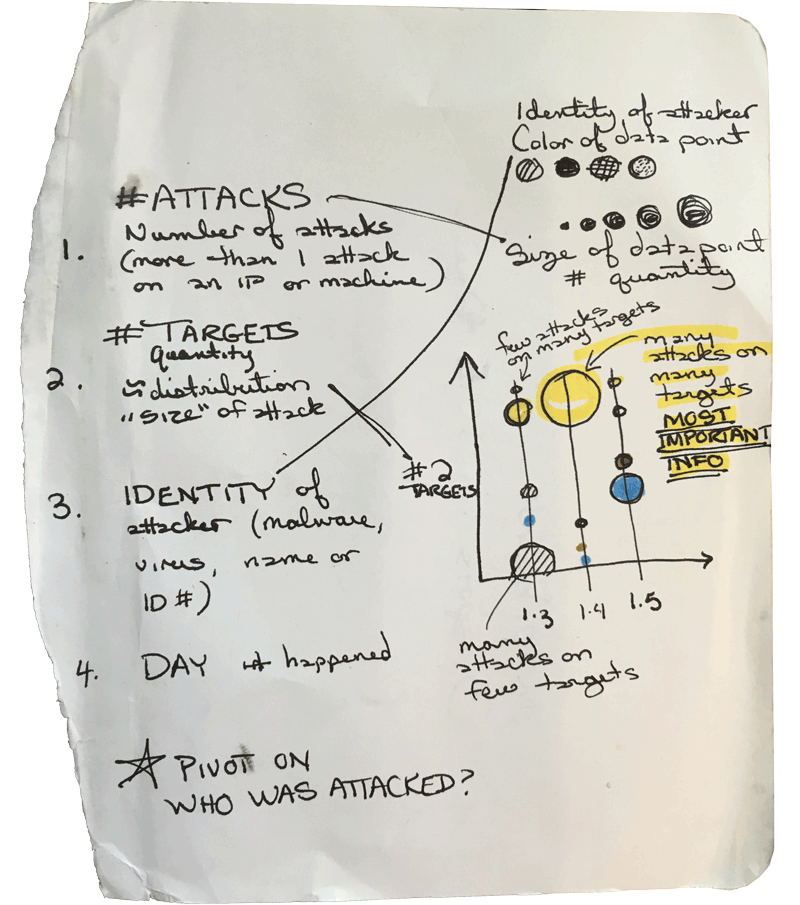 Identity of attacker
Color of data point
#ATTACKS
1. Number of attacks
(more than 1 attack
on an IP or machine)
Size of data point
# quantity
#TARGETS
quantity
2. distribution
"SIZE" of attack
few attacks
on many targets
many
attacks on
many
targets
MOST
IMPORTANT
INFO
#2
TARGETS
3. IDENTITY of
attacker (malware,
virus, name or
ID #)
1.3 1.4 1.5
many
attacks on
few targets
4. DAY it happened
PIVOT ON
WHO WAS ATTACKED?